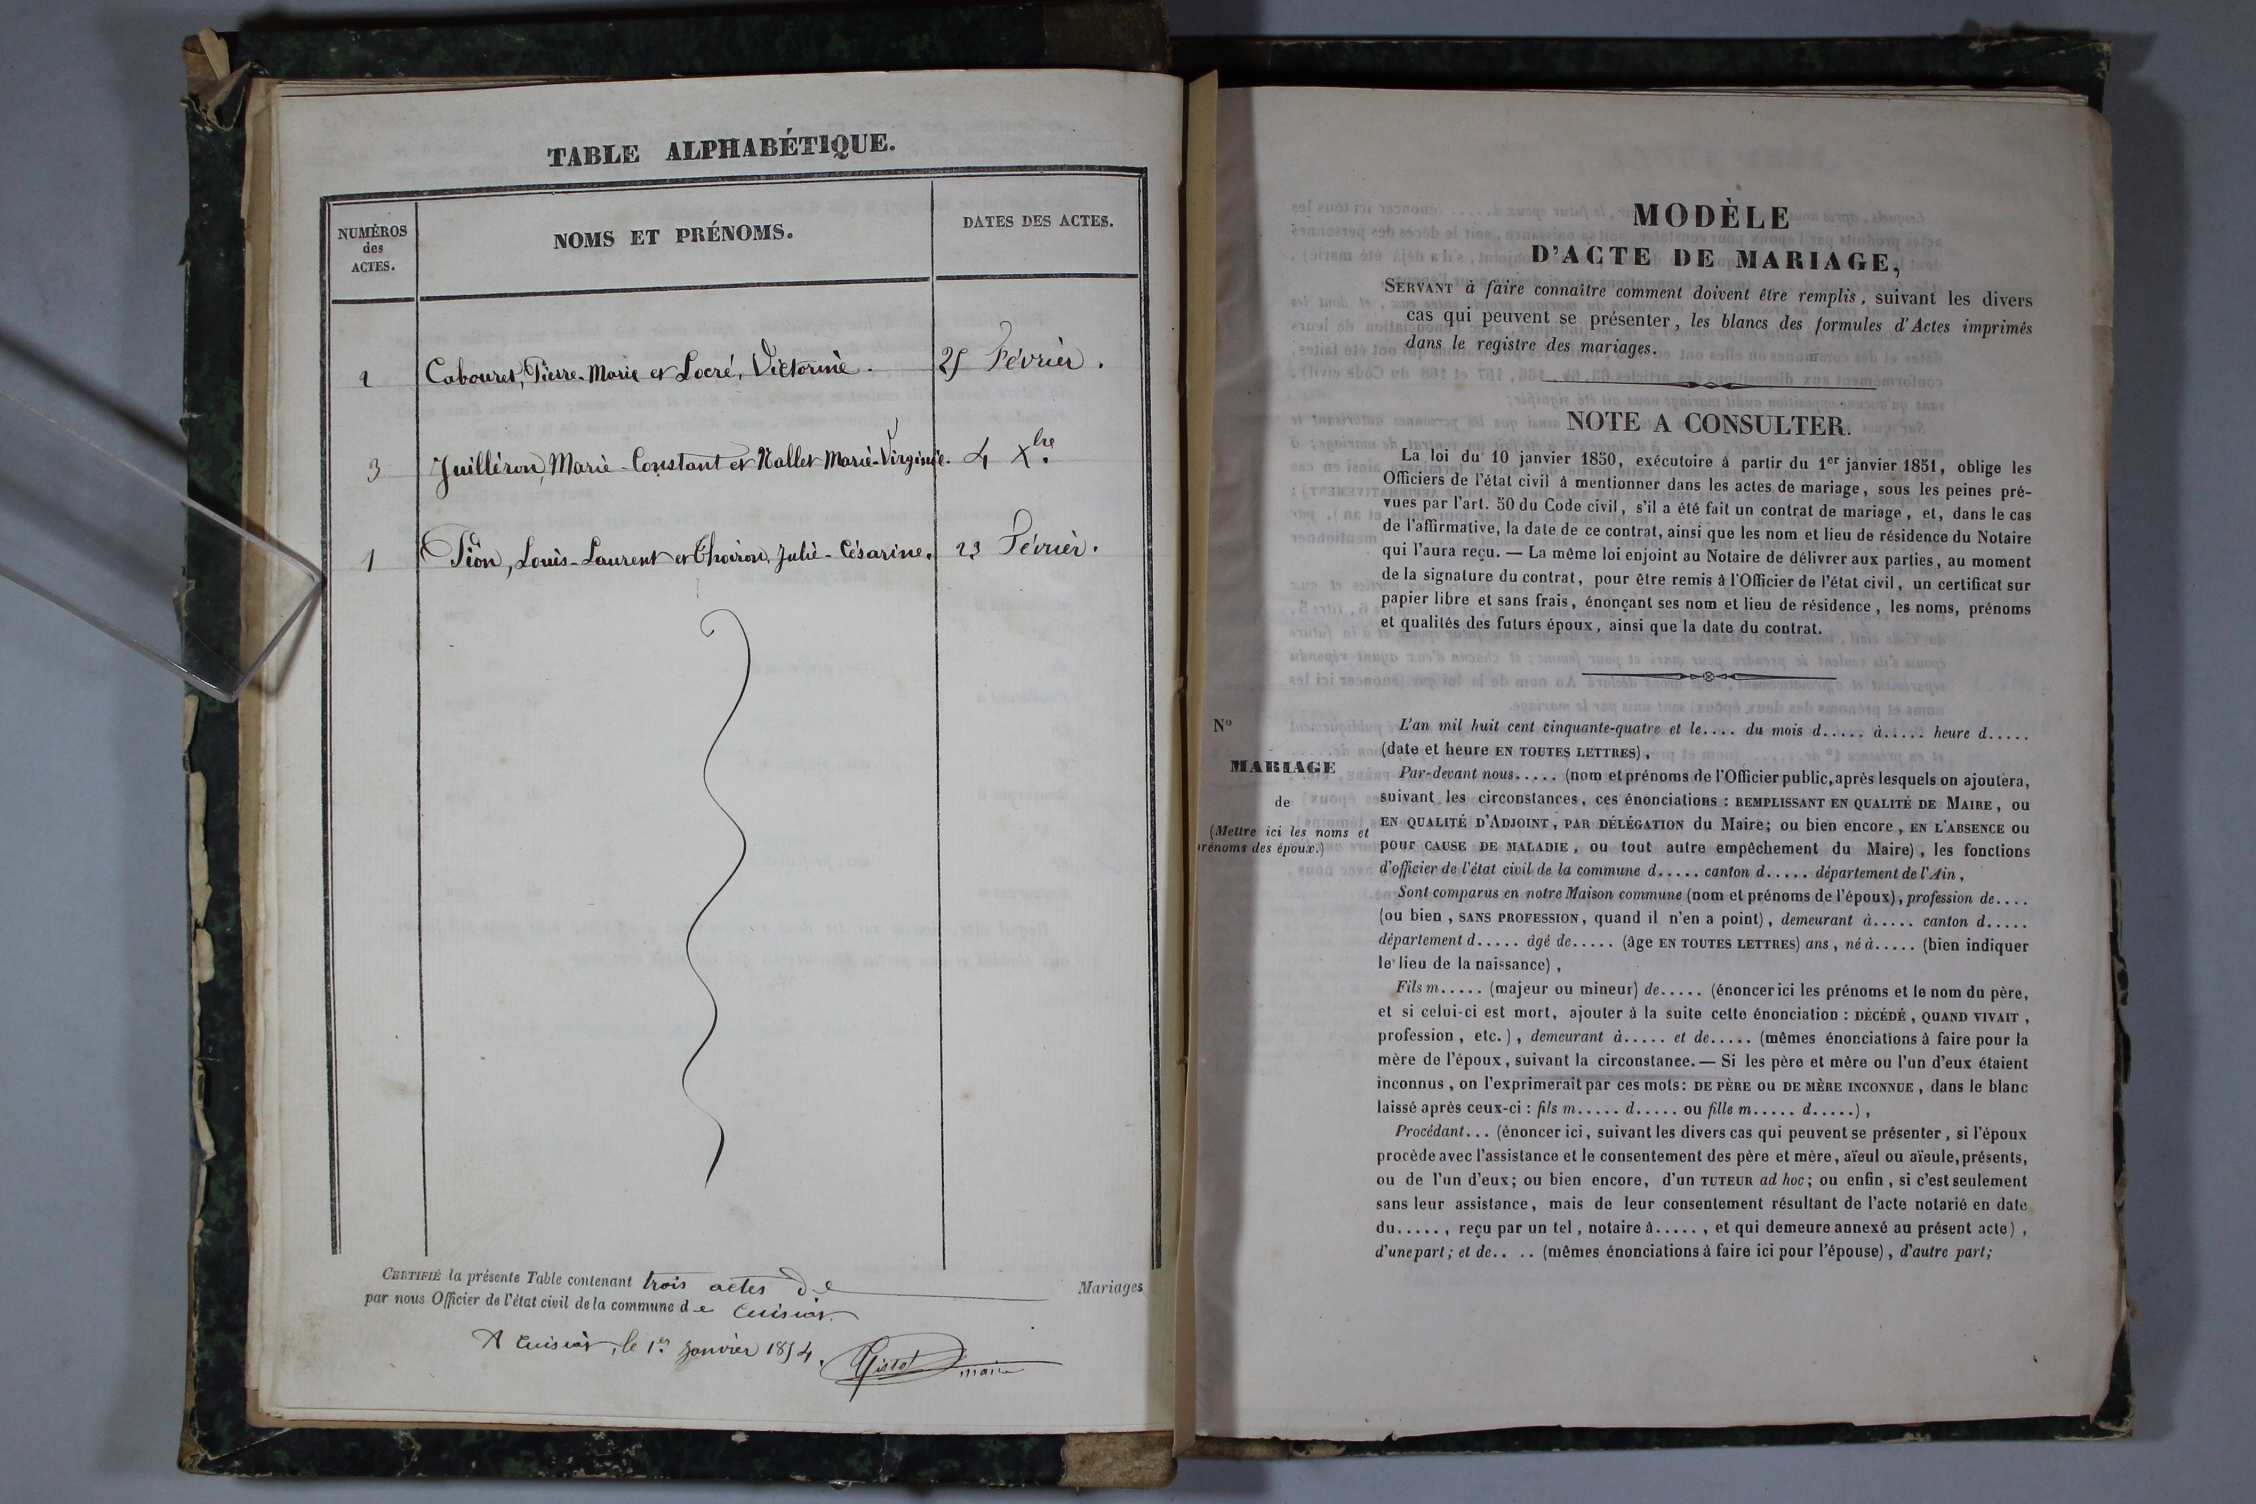 TABLE ALPHABÉTIQUE.
NUMÉROS
des
ACTES.
NOMS ET PRÉNOMS.
DATES DES ACTES.
2 Cabouret, Pierre-Marie et Locré, Victorine. 25 Février.
3 Juilléron, Marie-Constant et Nallet Marie-Virginie. 4 Xbre.
1 Pion, Louis-Laurent et Thoiron, Julie-Césarine. 23 Février.
CERTIFIÉ la présente Table contenant trois actes de Mariages
par nous Officier de l'état civil de la commune de Cuisiat.
A Cuisiat, le 1er Janvier 1854.
maire
MODÈLE
D'ACTE DE MARIAGE,
SERVANT à faire connaître comment doivent être remplis, suivant les divers
cas qui peuvent se présenter, les blancs des formules d'Actes imprimés
dans le registre des mariages.
NOTE A CONSULTER.
La loi du 10 janvier 1850, exécutoire à partir du 1er janvier 1851, oblige les
Officiers de l'état civil à mentionner dans les actes de mariage, sous les peines pré-
vues par l'art. 50 du Code civil, s'il a été fait un contrat de mariage, et, dans le cas
de l'affirmative, la date de ce contrat, ainsi que les nom et lieu de résidence du Notaire
qui l'aura reçu. — La même loi enjoint au Notaire de délivrer aux parties, au moment
de la signature du contrat, pour être remis à l'Officier de l'état civil, un certificat sur
papier libre et sans frais, énonçant ses nom et lieu de résidence, les noms, prénoms
et qualités des futurs époux, ainsi que la date du contrat.
No
MARIAGE
de
(Mettre ici les noms et
prénoms des époux.)
L'an mil huit cent cinquante-quatre et le.... du mois d..... à..... heure d.....
(date et heure EN TOUTES LETTRES),
Par-devant nous..... (nom et prénoms de l'Officier public, après lesquels on ajoutera,
suivant les circonstances, ces énonciations : REMPLISSANT EN QUALITÉ DE MAIRE, ou
EN QUALITÉ D'ADJOINT, PAR DÉLÉGATION du Maire; ou bien encore, EN L'ABSENCE ou
pour CAUSE DE MALADIE, ou tout autre empêchement du Maire), les fonctions
d'officier de l'état civil de la commune d..... canton d..... département de l'Ain,
Sont comparus en notre Maison commune (nom et prénoms de l'époux), profession de....
(ou bien, SANS PROFESSION, quand il n'en a point), demeurant à..... canton d.....
département d..... âgé de..... (âge EN TOUTES LETTRES) ans, né à..... (bien indiquer
le lieu de la naissance),
Fils m..... (majeur ou mineur) de..... (énoncer ici les prénoms et le nom du père,
et si celui-ci est mort, ajouter à la suite cette énonciation : DÉCÉDÉ, QUAND VIVAIT,
profession, etc.), demeurant à..... et de..... (mêmes énonciations à faire pour la
mère de l'époux, suivant la circonstance. — Si les père et mère ou l'un d'eux étaient
inconnus, on l'exprimerait par ces mots: DE PÈRE OU DE MÈRE INCONNUE, dans le blanc
laissé après ceux-ci : fils m..... d..... ou fille m..... d.....),
Procédant... (énoncer ici, suivant les divers cas qui peuvent se présenter, si l'époux
procède avec l'assistance et le consentement des père et mère, aïeul ou aïeule, présents,
ou de l'un d'eux; ou bien encore, d'un TUTEUR ad hoc; ou enfin, si c'est seulement
sans leur assistance, mais de leur consentement résultant de l'acte notarié en date
du....., reçu par un tel, notaire à....., et qui demeure annexé au présent acte),
d'une part; et de.. .. (mêmes énonciations à faire ici pour l'épouse), d'autre part;